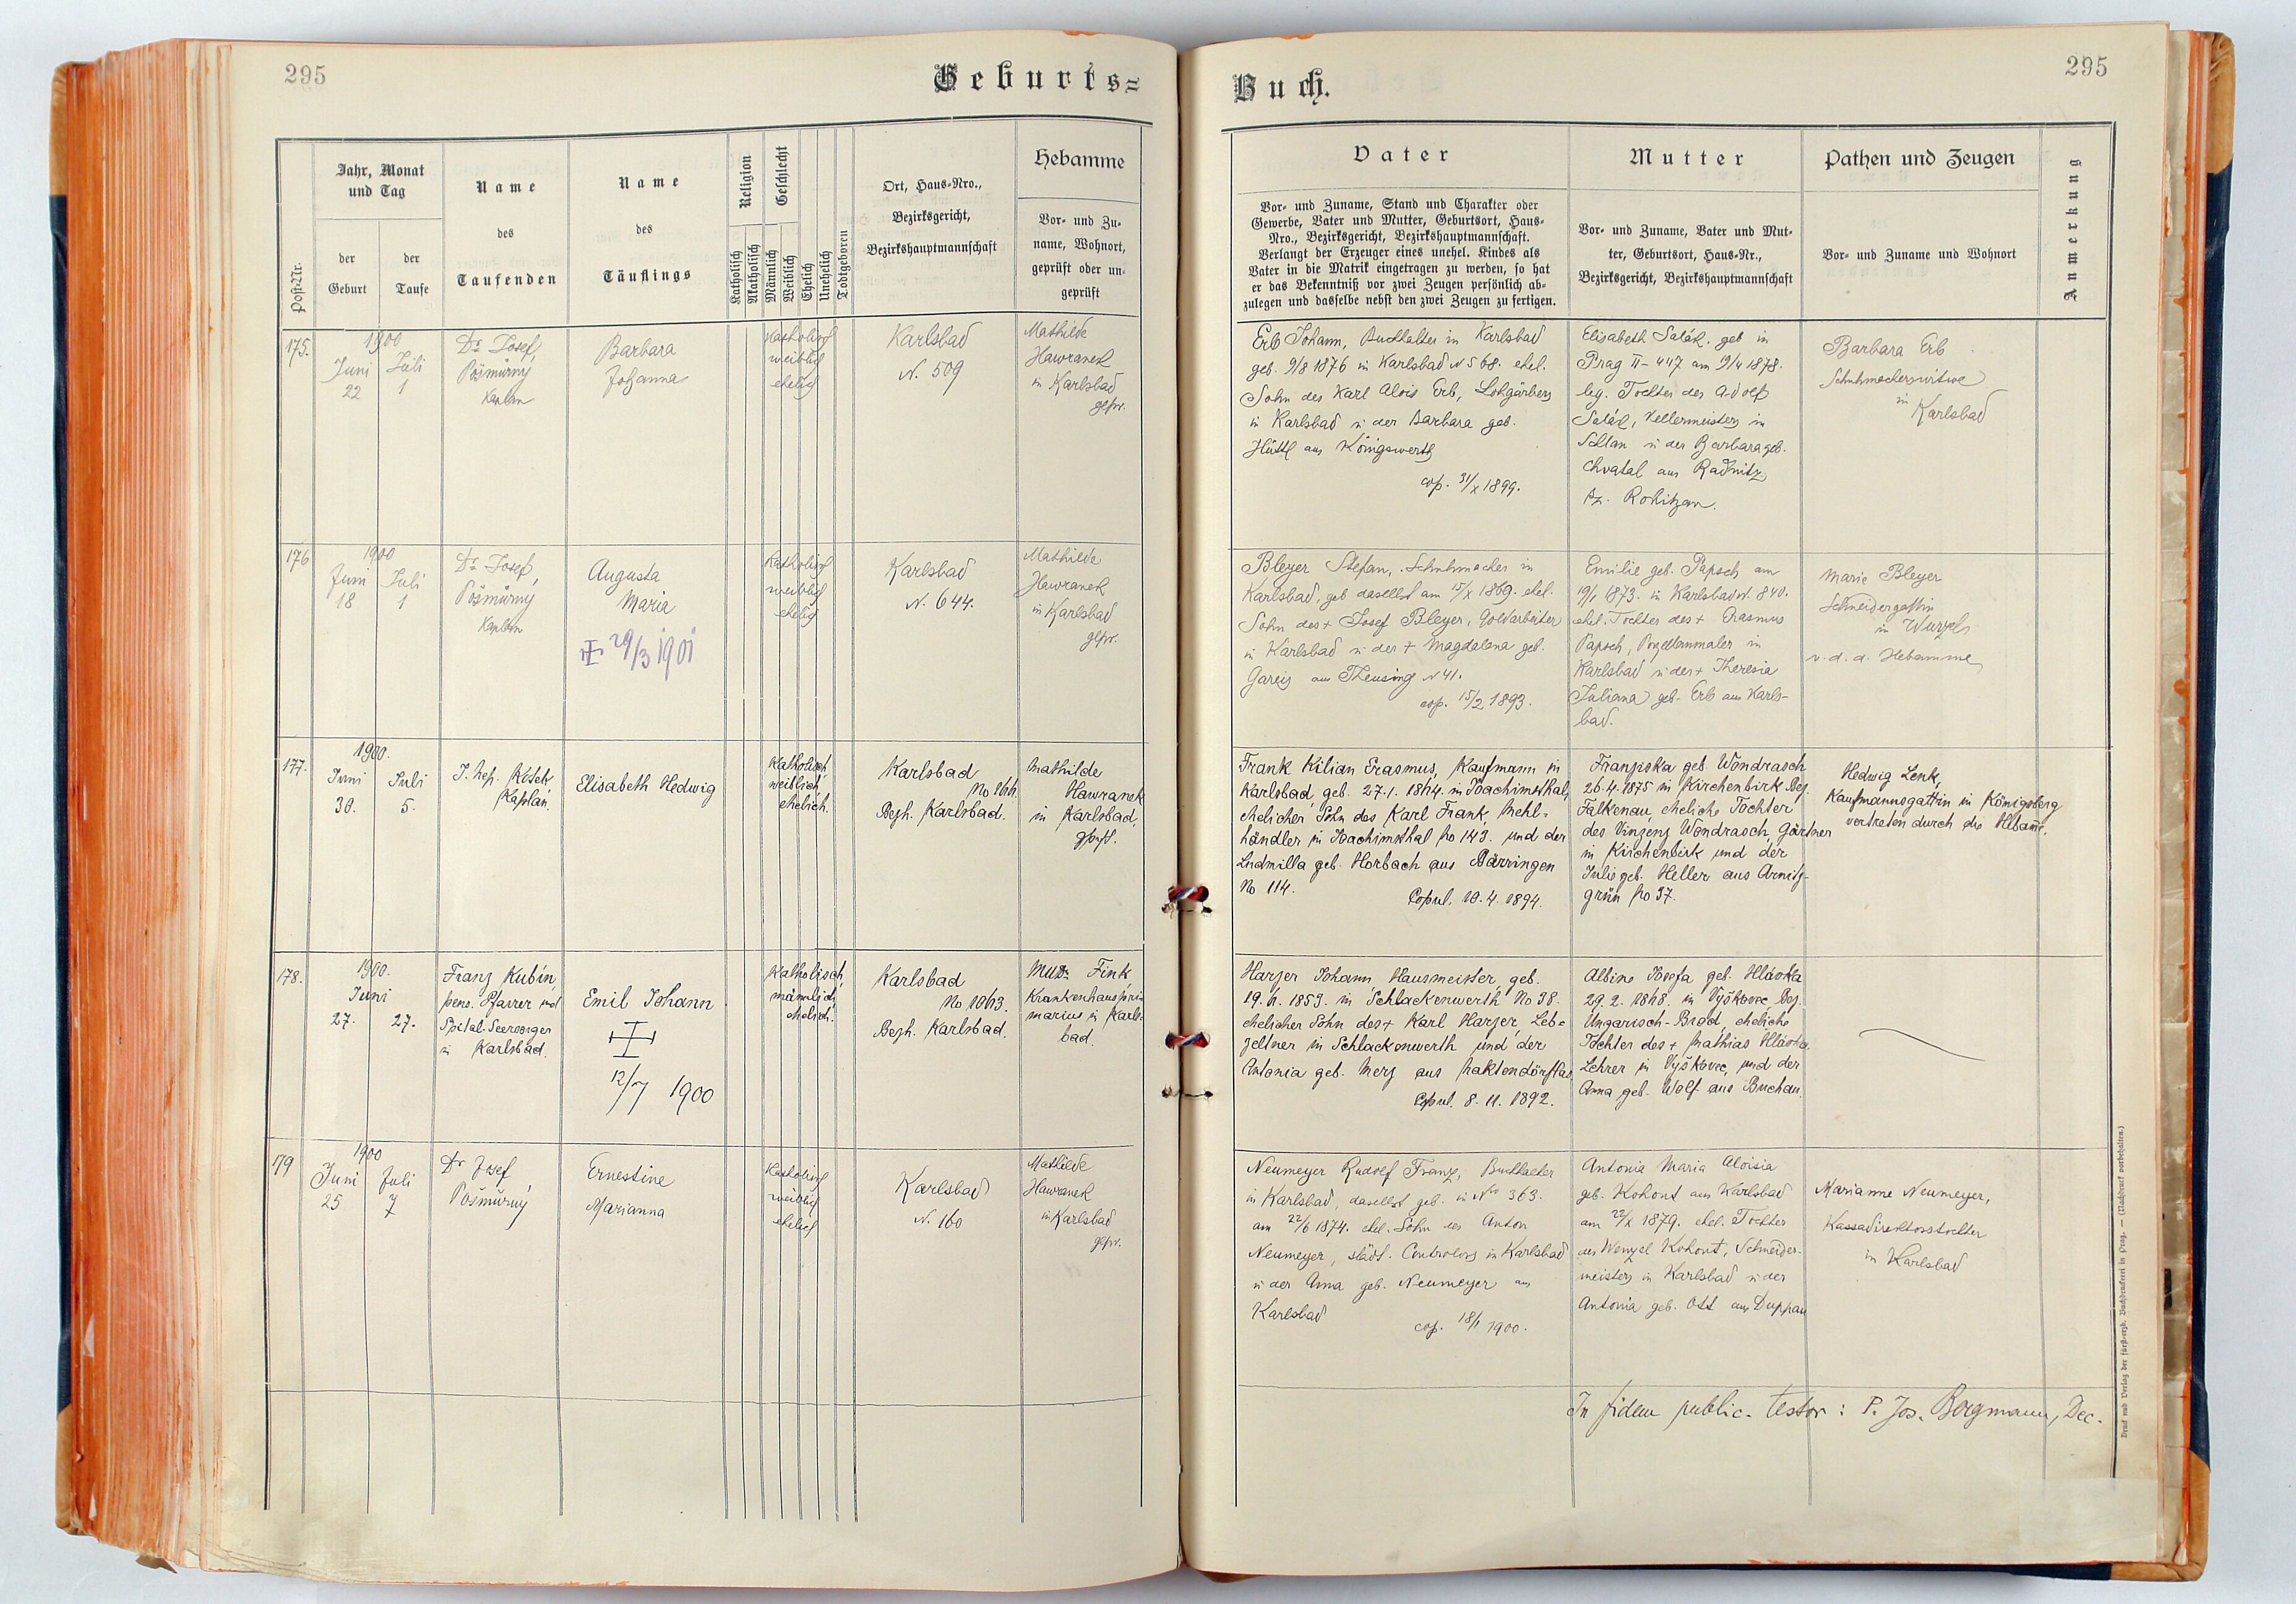 295
Geburts=
Post-Nr.
Jahr, Monat
und Tag
der
Geburt
der
Taufe
Name
des
Taufenden
Name
des
Täuflings
Religion
Katholisch
Akatholisch
Geschlecht
Männlich
Weiblich
Ehelich
Unehelich
Todtgeboren
Ort, Haus-Nro.,
Bezirksgericht,
Bezirkshauptmannschaft
Hebamme
Vor- und Zu-
name, Wohnort,
geprüft oder un-
geprüft
175.
1900
Juni
22
Juli
1
Dr. Josef
Pošmůrny
Kaplan
Barbara
Johanna
Katholisch
weiblich
ehelich
Karlsbad
N. 509
Mathilde
Hawranek
in Karlsbad
gepr.
176
1900
Juni
18
Juli
1
Dr. Josef
Pošmůrny
Kaplan
Augusta
Maria
29/3 1901
Katholisch
weiblich
ehelich
Karlsbad
N. 644.
Mathilde
Hawranek
in Karlsbad
gepr.
177.
1900.
Juni
30.
Juli
5.
J. Nep. Kosch
Kaplan.
Elisabeth Hedwig
Katholisch,
weiblich,
ehelich.
Karlsbad
No 166.
Bezh. Karlsbad.
Mathilde
Hawranek
in Karlsbad,
178.
1900.
Juni
27.
27.
Franz Kubín,
pens. Pfarrer und
Spital-Seelsorger
in Karlsbad.
Emil Johann
12/7 1900
Katholisch,
männlich,
ehelich.
Karlsbad
No 1063.
Bezh. Karlsbad.
MUDr. Fink
Krankenhauspri-
marius in Karls-
bad.
179
1900
Juni
25
Juli
7
Dr Josef
Pošmůrny
Ernestine
Marianna
Katholisch
weiblich
ehelich
Karlsbad
N. 160
Mathilde
Hawranek
in Karlsbad
gepr.
Buch.
295
Vater
Vor- und Zuname, Stand und Charakter oder
Gewerbe, Vater und Mutter, Geburtsort, Haus-
Nro., Bezirksgericht, Bezirkshauptmannschaft.
Verlangt der Erzeuger eines unehel. Kindes als
Vater in die Matrik eingetragen zu werden, so hat
er das Bekenntniß vor zwei Zeugen persönlich ab-
zulegen und dasselbe nebst den zwei Zeugen zu fertigen.
Mutter
Vor- und Zuname, Vater und Mut-
ter, Geburtsort, Haus-Nr.,
Bezirksgericht, Bezirkshauptmannschaft
Pathen und Zeugen
Vor- und Zuname und Wohnort
Anmerkung
Erb Johann, Buchhalter in Karlsbad
geb. 9/8 1876 in Karlsbad N 568. ehel.
Sohn des Karl Alois Erb, Lohgärbers
in Karlsbad u der Barbara geb.
Hüttl aus Königswerth
cop. 31/X 1899.
Elisabeth Salák, geb in
Prag II-447 am 19/4 1878.
leg. Tochter des Adolf
Salák, Kellermeisters in
Schlan u der Barbara geb.
Chvatal aus Radnitz
Bz. Rokitzan.
Barbara Erb
Schuhmacherswitwe
in
Karlsbad
Bleyer Stefan, Schuhmacher in
Karlsbad, geb daselbst am 15/X 1869. ehel.
Sohn des + Josef Bleyer, Goldarbeiter
in Karlsbad u der + Magdalena geb.
Gareis aus Theusing N 41.
cop. 15/2 1893.
Emilie geb. Papsch am
19/1 1873. in Karlsbad N. 840.
ehel. Tochter des + Erasmus
Papsch, Porzellanmaler in
Karlsbad u der + Theresia
Juliana geb. Erb aus Karls-
bad.
Marie Bleyer
Schneidergattin
in
v. d. d. Hebamme
Frank Kilian Erasmus, Kaufmann in
Karlsbad, geb. 27.1. 1864. in Joachimsthal,
ehelicher Sohn des Karl Frank, Mehl-
händler in Joachimsthal No 143. und der
Ludmilla geb. Horbach aus Bärringen
No 114.
Copul. 10. 4. 1894.
Franziska geb. Wondrasch
26.4.1875 in Kirchenbirk Bez.
Falkenau, eheliche Tochter
des Vinzenz Wondrasch, Gärtner
in Kirchenbirk und der
Julie geb. Heller aus Arnitz-
grün No 37.
Hedwig Lenk,
Kaufmannsgattin in Königsberg
vertreten durch die Hebame.
Harzer Johann, Hausmeister, geb.
19. 6. 1853. in Schlackenwerth No 38.
ehelicher Sohn des + Karl Harzer, Leb-
zeltner in Schlackenwerth und der
Antonia geb. Merz aus
Copul. 8. 11. 1892.
Albine Josefa geb. Hlávka
29. 2. 1868. in Vyškovec, Bez.
Ungarisch-Brod, eheliche
Tochter des + Mathias Hlávka
Lehrer in Vyškovec, und der
Anna geb. Wolf aus Buchau.
Neumeyer Rudolf Franz, Buchhalter
in Karlsbad, daselbst geb. in Nro 363.
am 22/6 1874. ehel. Sohn des Anton
Neumeyer, städt. Controlors in Karlsbad
u der Anna geb. Neumeyer aus
Karlsbad
cop. 18/1 1900.
Antonia Maria Aloisia
geb. Kohout aus Karlsbad
am 22/X 1879. ehel. Tochter
des Wenzel Kohout, Schneider-
meisters in Karlsbad u der
Antonia geb. Ott aus Duppau
Marianne Neumeyer,
Kassadirektorstochter
in Karlsbad
In fidem public. testor: P. Jos. Bergmann, Dec.
Druck und Verlag der fürst-erzb. Buchdruckerei in Prag. — (Nachdruck vorbehalten.)